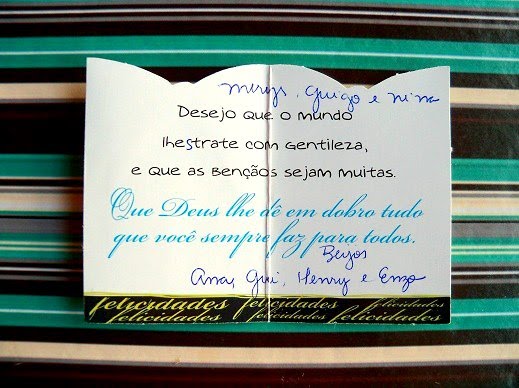 Merys, Guigo e Nina
Desejo que o mundo
lhestrate com gentileza,
e que as bençãos sejam muitas.
Que Deus lhe dê em dobro tudo
que você sempre faz para todos.
Beyos
Ana, Gui, Henry e Enzo
felicidades felicidades felicidades
felicidades felicidades felicidades